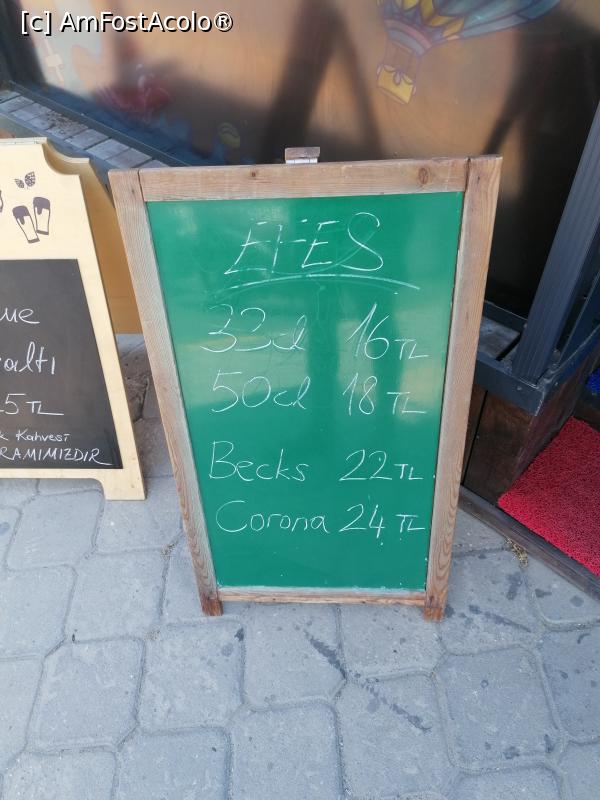 [c] AmFostAcolo®
EFES
33cl 16 TL
50cl 18 TL
Becks 22 TL
Corona 24 TL
altı
5 TL
Kahvesi
RAMIMIZDIR